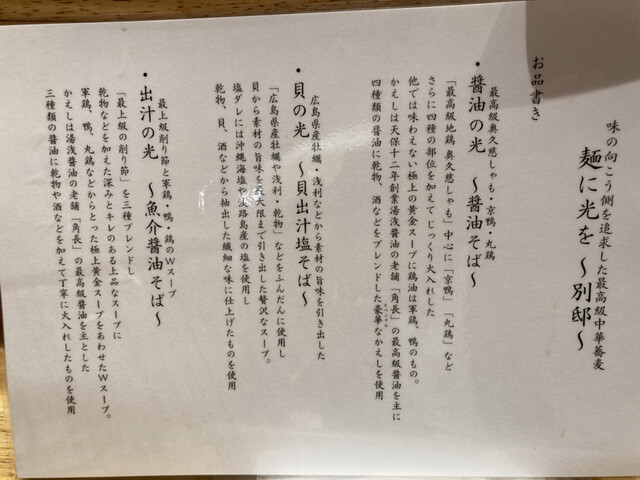 味の向こう側を追求した最高級中華蕎麦
麺に光を 〜別邸〜
お品書き
最高級奥久慈しゃも・京鴨・丸鶏
• 醤油の光 〜醤油そば〜
「最高級地鶏 奥久慈しゃも」中心に「京鴨」「丸鶏」など
さらに四種の部位を加えてじっくり火入れした
他では味わえない極上の黄金スープに鶏油は軍鶏、鴨のもの。
かえしは天保十二年創業湯浅醤油の老舗「角長」の最高級醤油を主に
四種類の醤油に乾物、酒などをブレンドした豪華なかえしを使用
広島県産牡蠣・浅利などから素材の旨味を引き出した
• 貝の光 〜貝出汁塩そば〜
「広島県産牡蠣や浅利・乾物」などをふんだんに使用し
貝から素材の旨味を最大限まで引き出した贅沢なスープ。
塩ダレには沖縄海塩や淡路島産の塩を使用し
乾物、貝、酒などから抽出した繊細な味に仕上げたものを使用
最上級削り節と軍鶏・鴨・鶏のWスープ
• 出汁の光 〜魚介醤油そば〜
「最上級の削り節」を三種ブレンドし
乾物などを加えた深みとキレのある上品なスープに
軍鶏、鴨、丸鶏などからとった極上黄金スープをあわせたWスープ。
かえしは湯浅醤油の老舗「角長」の最高級醤油を主とした
三種類の醤油に乾物や酒などを加えて丁寧に火入れしたものを使用